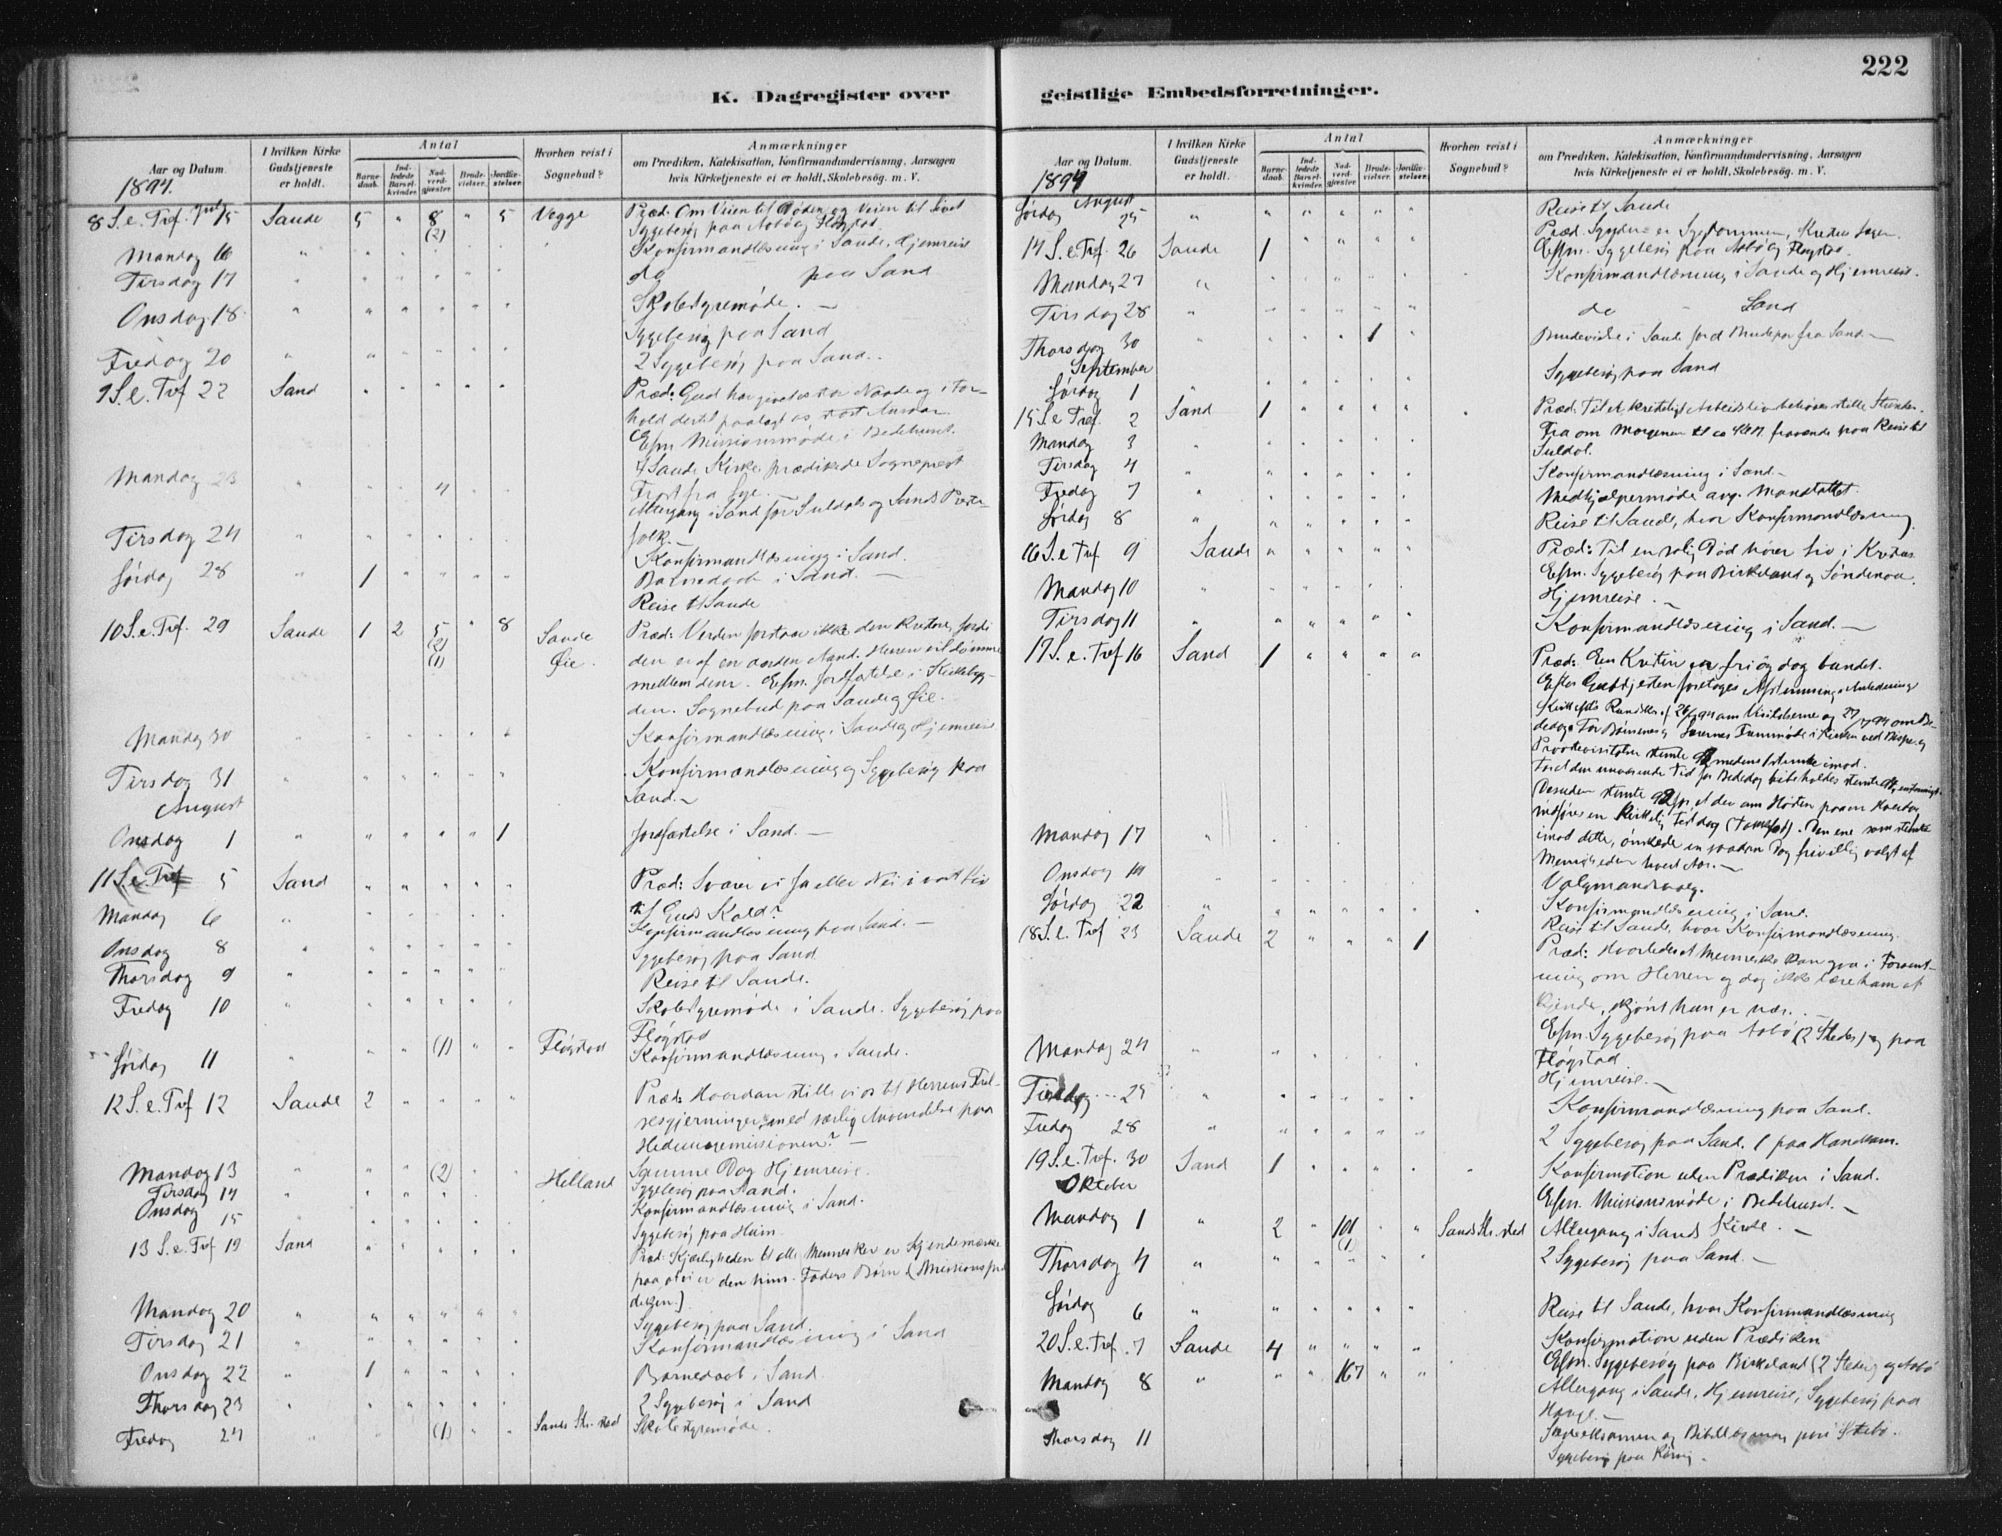 222
K. Dagregister over
Aar og Datum.
I hvilken Kirke Gudstjeneste er holdt.
Antal
Barnedaab.
Indledede Barselkvinder.
Nadverdgjester
Brudevielser.
Jordfæstelser.
Hvorhen reist i Sognebud?
Anmærkninger
om Prædiken, Katekisation, Konfirmandundervisning, Aarsagen
hvis Kirketjeneste ei er holdt, Skolebesøg. m. V.
1894.
8 S. e. Tref. Juli 15 Sande 5 " 8 " 5 Vegge Præd. Om Veien til Døden og Veien til Livet
(2) Sygebesøg paa Aabø og Fløgstad.
Mandag 16 Konfirmandlæsning i Sande. Hjemreise
Tirsdag 17 do paa Sand
Onsdag 18 Skolestyremøde. —
Sygebesøg paa Sand
Fredag 20 2 Sygebesøg paa Sand.
9 S. e. Tref 22 Sand Præd: Gud har givet os stor Naade og i For-
hold dertil paalagt os stort Ansvar.
Efm. Missionsmøde i Bedehuset.
I Sande Kirke prædikede Sogneprest
Mandag 23 " 4
Altergang i Sand for Suldals og Sands Preste-
folk. —
Tirsdag 24 Konfirmandlæsning i Sand.
Lørdag 28 " 1 Barnedaab i Sand. —
Reise til Sande
10 S. e. Tref. 29 Sande 1 2 5 " 8 Sande Præd: Verden forstaar ikke den Kristne, fordi
(2) (1) Øie. den er af en anden Aand. Herren vil dømme
mellem dem. Efm. Jordfæstelse i
den. Sognebud paa Sande og Øie.
Mandag 30 Konfirmandlæsning i Sande og Hjemreise
Tirsdag 31 Konfirmandlæsning og Sygebesøg paa
Sand. —
August
Onsdag 1 " 1 Jordfæstelse i Sand. —
11 S. e. Tref 5 Sand Præd: Svarer vi Ja eller Nei i vort Liv
til Guds Kald?
Mandag 6 Konfirmandlæsning paa Sand. —
Onsdag 8 Sygebesøg paa Sand
Thorsdag 9 Reise til Sande.
Fredag 10 Skolestyremøde i Sande. Sygebesøg paa
Fløgstad
Lørdag 11 (1) Fløgstad Konfirmandlæsning i Sande.
12 S. e. Tref 12 Sande 2 Præd: Hvordan stille vi os til Herrens Frel-
sesgjerninger, med særlig Anvendelse paa
Hedningemissionen? —
Samme Dag Hjemreise.
Mandag 13 (2) Helland Sygebesøg paa Sand.
Tirsdag 14 Konfirmandlæsning i Sand.
Onsdag 15 Sygebesøg paa
13 S. e. Tref 19 Sand Præd: Kjærligheden til alle Mennesker er Kjendemærke
paa at vi er den him. Faders Børn (Missionspræ-
diken).
Mandag 20 Sygebesøg paa Sand.
Tirsdag 21 Konfirmandlæsning i Sand
Onsdag 22 " 1 Barnedaab i Sand.
Thorsdag 23 2 Sygebesøg i Sand
Fredag 24 (1) Sands Str. sted Skolestyremøde.
geistlige Embedsforretninger.
Aar og Datum.
I hvilken Kirke Gudstjeneste er holdt.
Antal
Barnedaab.
Indledede Barselkvinder.
Nadverdgjester.
Brudevielser.
Jordfæstelser.
Hvorhen reist i Sognebud?
Anmærkninger
om Prædiken, Katekisation, Konfirmandundervisning, Aarsagen
hvis Kirketjeneste ei er holdt, Skolebesøg. m. V.
1894
August
Lørdag 25 Reise til Sande
14 S. e. Tref. 26 Sande 1 Præd. Synden er Sygdommen, Kristus Lægen.
Efm. Sygebesøg paa Aabø og Fløgstad.
Mandag 27 Konfirmandlæsning i Sande og Hjemreise.
Tirsdag 28 do — Sand
Thorsdag 30 " 1 Brudevielse i Sande for et Brudepar fra Sand —
September
Lørdag 1 Sygebesøg paa Sand
15 S. e. Tref. 2 Sand 1 Præd. Til et kristeligt Arbeidsliv behøves stille Stunder.
Mandag 3 Fra om Morgenen til ca fraværende paa Reise til
Suldal.
Tirsdag 4 Konfirmandlæsning i Sand —
Fredag 7 Medhjælpermøde ang. Manntallet.
Lørdag 8 Reise til Sande, hvor Konfirmandlæsning.
16 S. e. Tref. 9 Sande Præd: Til en salig Død hører Liv i Kristus
Efm. Sygebesøg paa Birkeland og Søndenaa.
Mandag 10 Hjemreise. —
Tirsdag 11 Konfirmandlæsning i Sand. —
17 S. e. Tref 16 Sand 1 Præd: En Kristen er fri og dog bundet.
Efter Gudstjenesten foretoges Afstemning i Anledning
Mandag 17
imod dette, ønskede en saadan Dag frivillig valgt af
Menigheden hvert Aar. —
Onsdag 19 Valgmandsvalg.
Konfirmandlæsning i Sand.
Lørdag 22 Reise til Sande, hvor Konfirmandlæsning.
18 S. e. Tref 23 Sande 2 " 1 Præd: Hvorledes et Menneske kan gaa i Forvent-
ning om Herren og dog ikke lære ham at
kjende, skjønt han er nær.
Efm. Sygebesøg paa Aabø (2 Steder) og paa
Fløgstad
Mandag 24 Hjemreise. —
Tirsdag 25 Konfirmandlæsning paa Sand.
Fredag 28 2 Sygebesøg paa Sand. 1 paa
19 S. e. Tref. 30 Sand 1 Konfirmation uden Prædiken i Sand.
Efm. Missionsmøde i Bedehuset. —
Oktober
Mandag 1 " 2 " 101 (1) Sands Str. sted Altergang i Sands Kirke. —
Thorsdag 4 2 Sygebesøg paa Sand. —
Lørdag 6 Reise til Sande, hvor Konfirmandlæsning
20 S. e. Tref. 7 Sande 4 Konfirmation uden Prædiken
Efm. Sygebesøg paa Birkeland (2 Steder) og Aabø
Mandag 8 " 167 Altergang i Sande, Hjemreise, Sygebesøg paa
Thorsdag 11
Sygebesøg paa